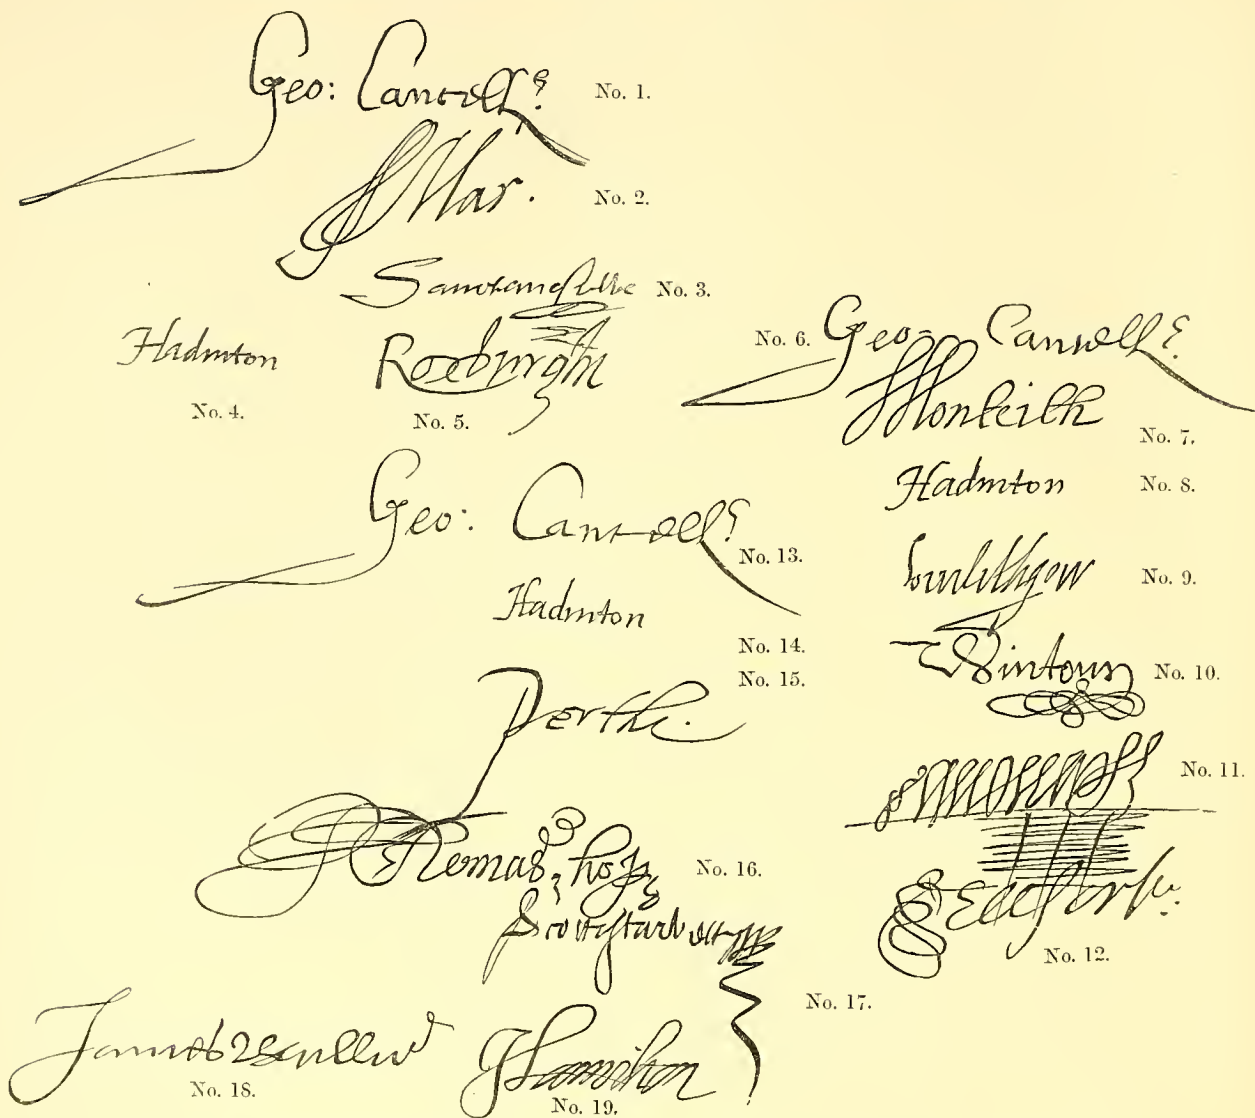 Geo: Cancell? No. 1.
Mar. No. 2.
No. 3.
Hadinton
No. 4.
Roxburghe
No. 5.
No. 6. Geo: Cancell?
Monteith
No. 7.
Hadinton No. 8.
Linlithgow No. 9.
Wintoun No. 10.
No. 11.
No. 12.
Geo: Cancell?
No. 13.
Hadinton
No. 14.
No. 15.
Perthe.
Thomas hop No. 16.
Scottistarvett
No. 17.
James
No. 18.
JHamilton
No. 19.